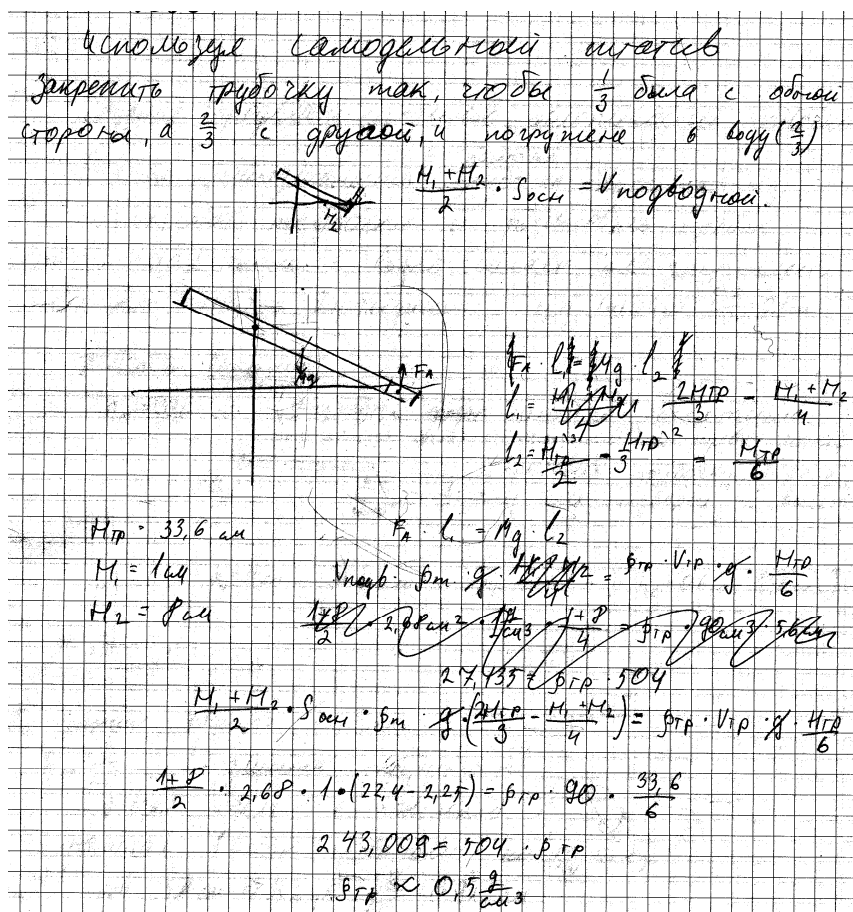 используя самодельный штатив
закрепить трубочку так, чтобы 1/3 была с одной
стороны, а 2/3 с другой, и погружена в воду (2/3)
(H₁ + H₂)/2 · Sосн = Vподводной.
H₂
Mg Fₐ
Fₐ · l₁ = Mg · l₂
l₁ = 2Hтр/3 - (H₁ + H₂)/4
l₂ = Hтр\³/2 - Hтр\²/3 = Hтр/6
Hтр = 33,6 см Fₐ · l₁ = Mg · l₂
H₁ = 1 см Vподв · ρт · g · = ρтр · Vтр · g · Hтр/6
H₂ = 8 см (1+8)/2 · 2,68 см² · 1 г/см³ · (1+8)/4 = ρтр · 90 см³ · 5,6 см
27,135 = ρтр · 504
(H₁ + H₂)/2 · Sосн · ρт · g · (2Hтр/3 - (H₁ + H₂)/4) = ρтр · Vтр · g · Hтр/6
(1+8)/2 · 2,68 · 1 · (22,4 - 2,25) = ρтр · 90 · 33,6/6
243,009 = 504 · ρтр
ρтр ≈ 0,5 g/см³